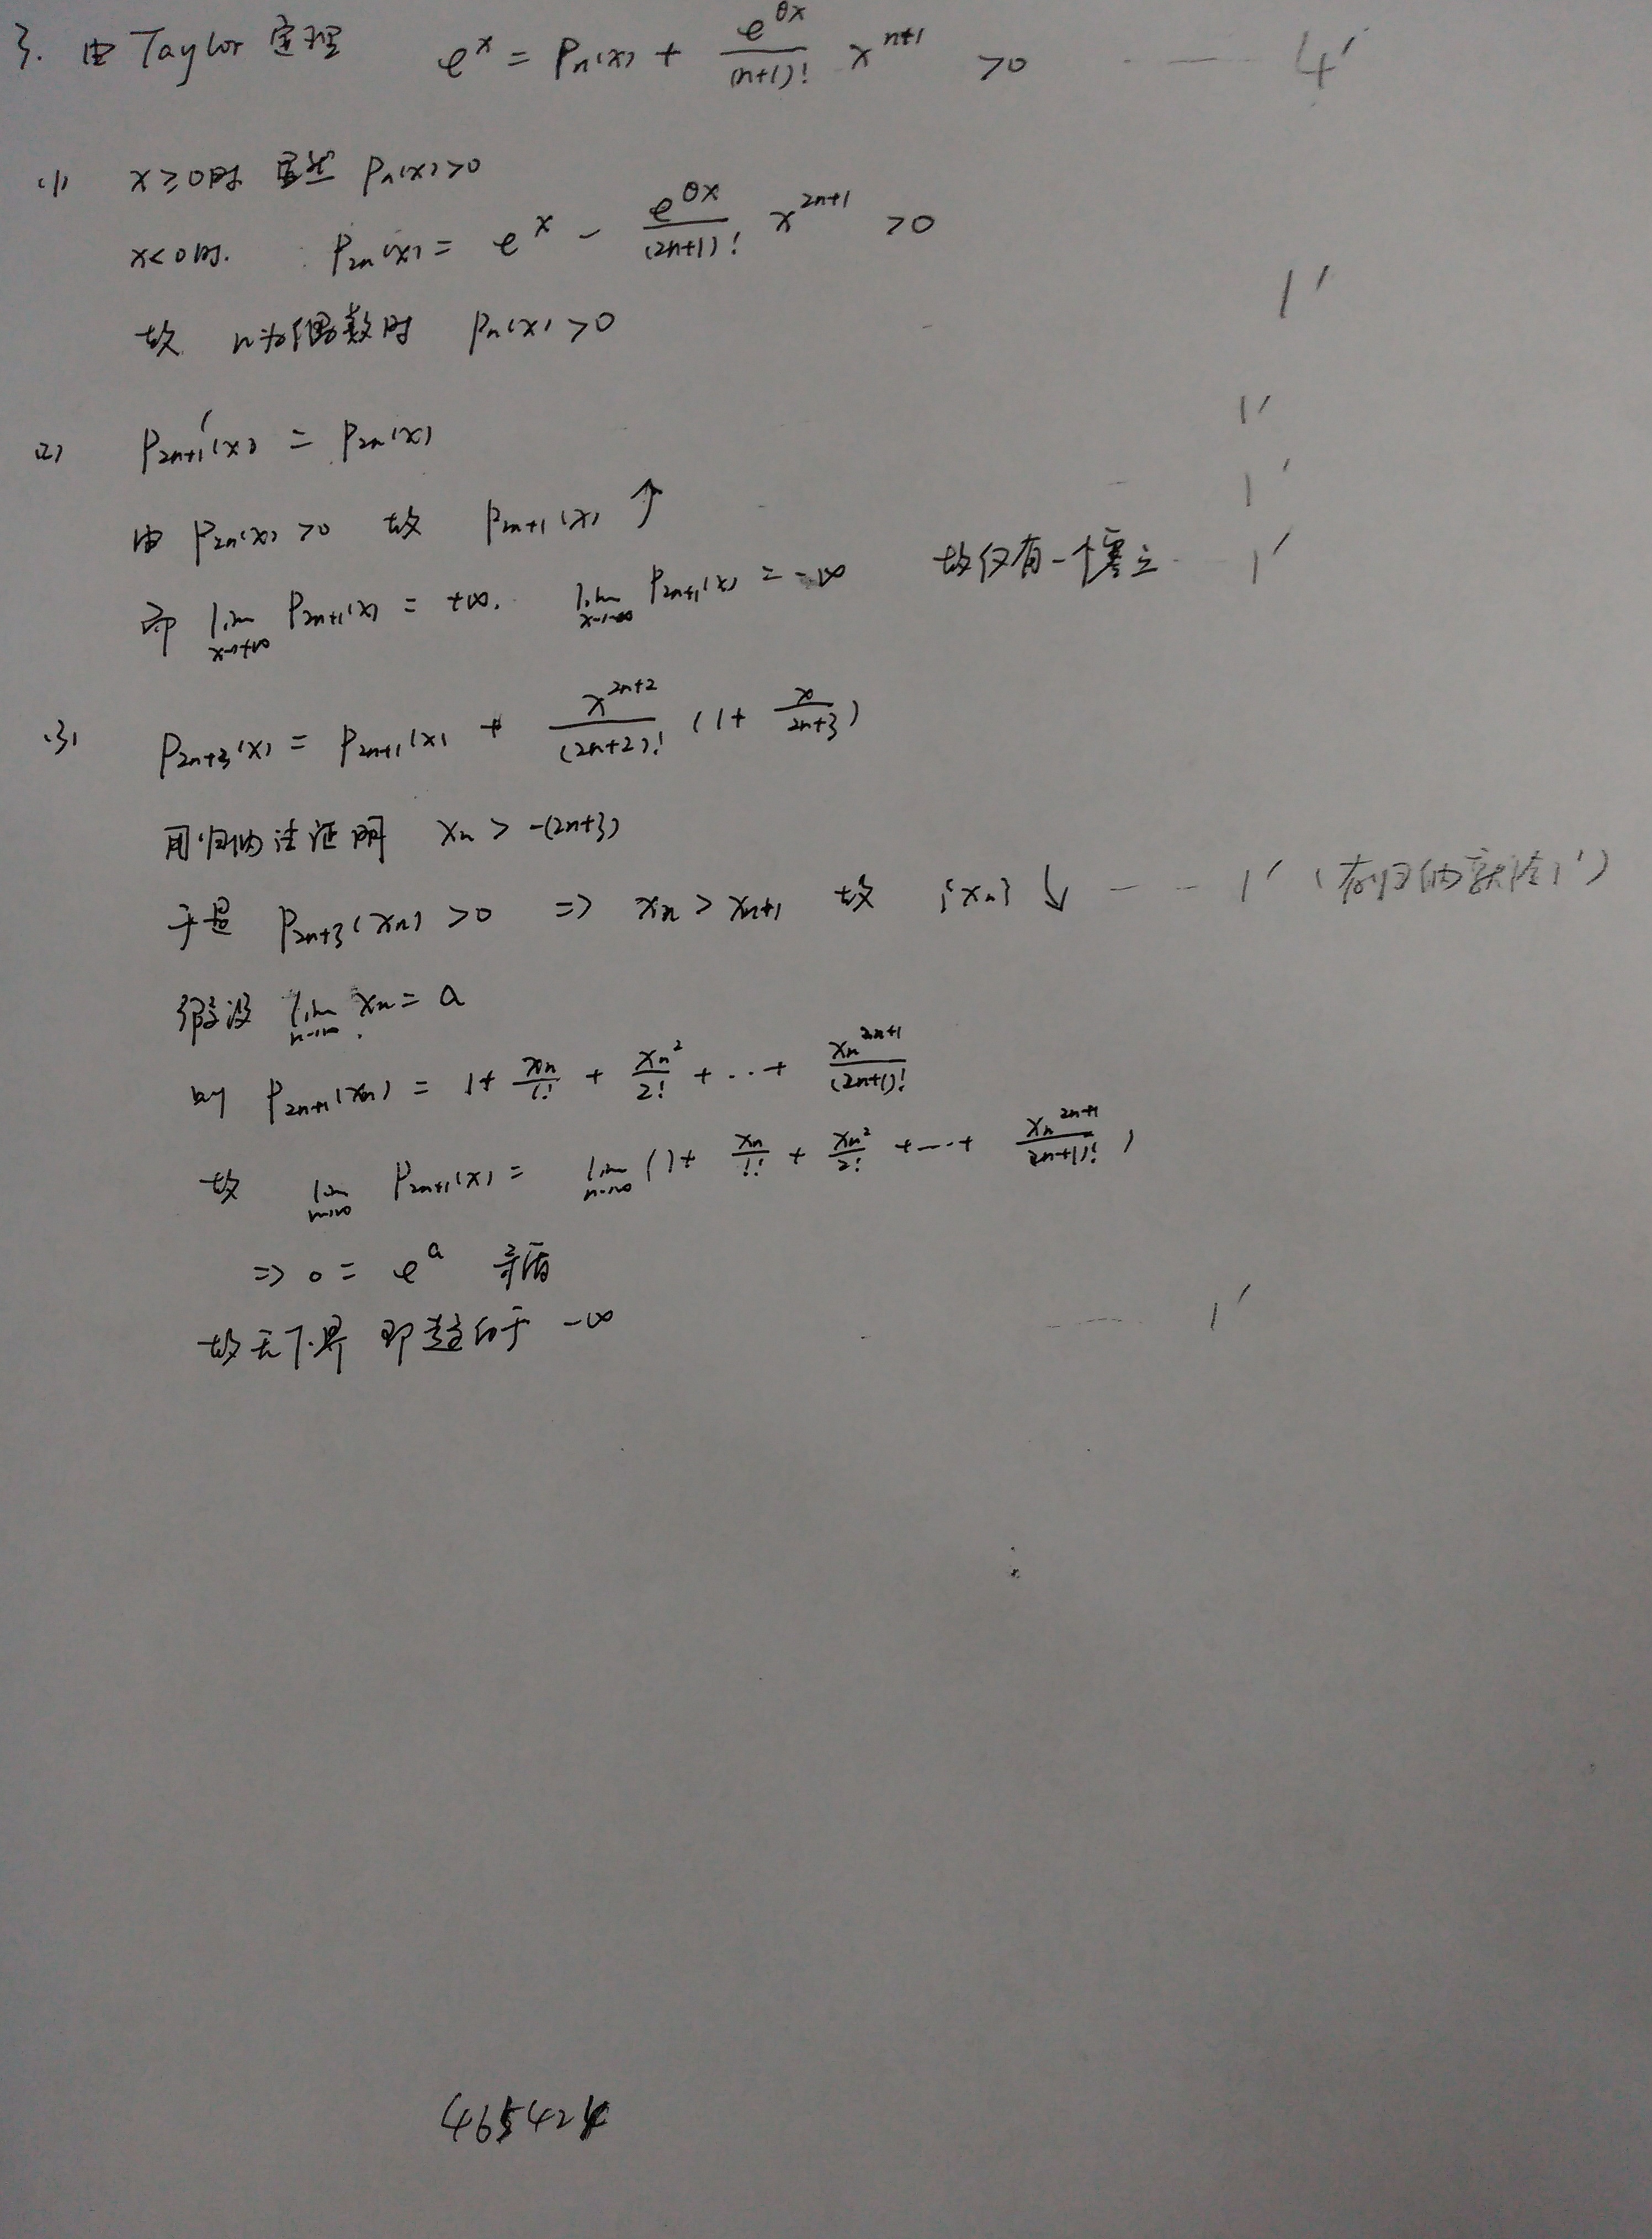 3. 由 Taylor 定理 e^x = Pn(x) + e^{θx}/(n+1)! x^{n+1} >0 —— 4′
(1) x≥0时 显然 Pn(x)>0
x<0时. P2n(x) = e^x − e^{θx}/(2n+1)! x^{2n+1} >0
故 n为偶数时 Pn(x)>0 1′
(2) P2n+1′(x) = P2n(x) 1′
由 P2n(x)>0 故 P2n+1(x) ↑ 1′
而 lim_{x→+∞} P2n+1(x) = +∞. lim_{x→-∞} P2n+1(x) = -∞ 故仅有一个零点 1′
(3) P2n+3(x) = P2n+1(x) + x^{2n+2}/(2n+2)! (1+ x/2n+3)
用归纳法证明 xn > -(2n+3)
于是 P2n+3(xn) >0 => xn > xn+1 故 {xn} ↓ —— 1′ (
假设 lim_{n→∞} xn = a
由 P2n+1(xn) = 1+ xn/1! + xn^2/2! + ... + xn^{2n+1}/(2n+1)!
故 lim_{n→∞} P2n+1(x) = lim_{n→∞} (1+ xn/1! + xn^2/2! + ... + xn^{2n+1}/(2n+1)! )
=> 0 = e^a 矛盾
故无下界 即趋向于 -∞ —— 1′